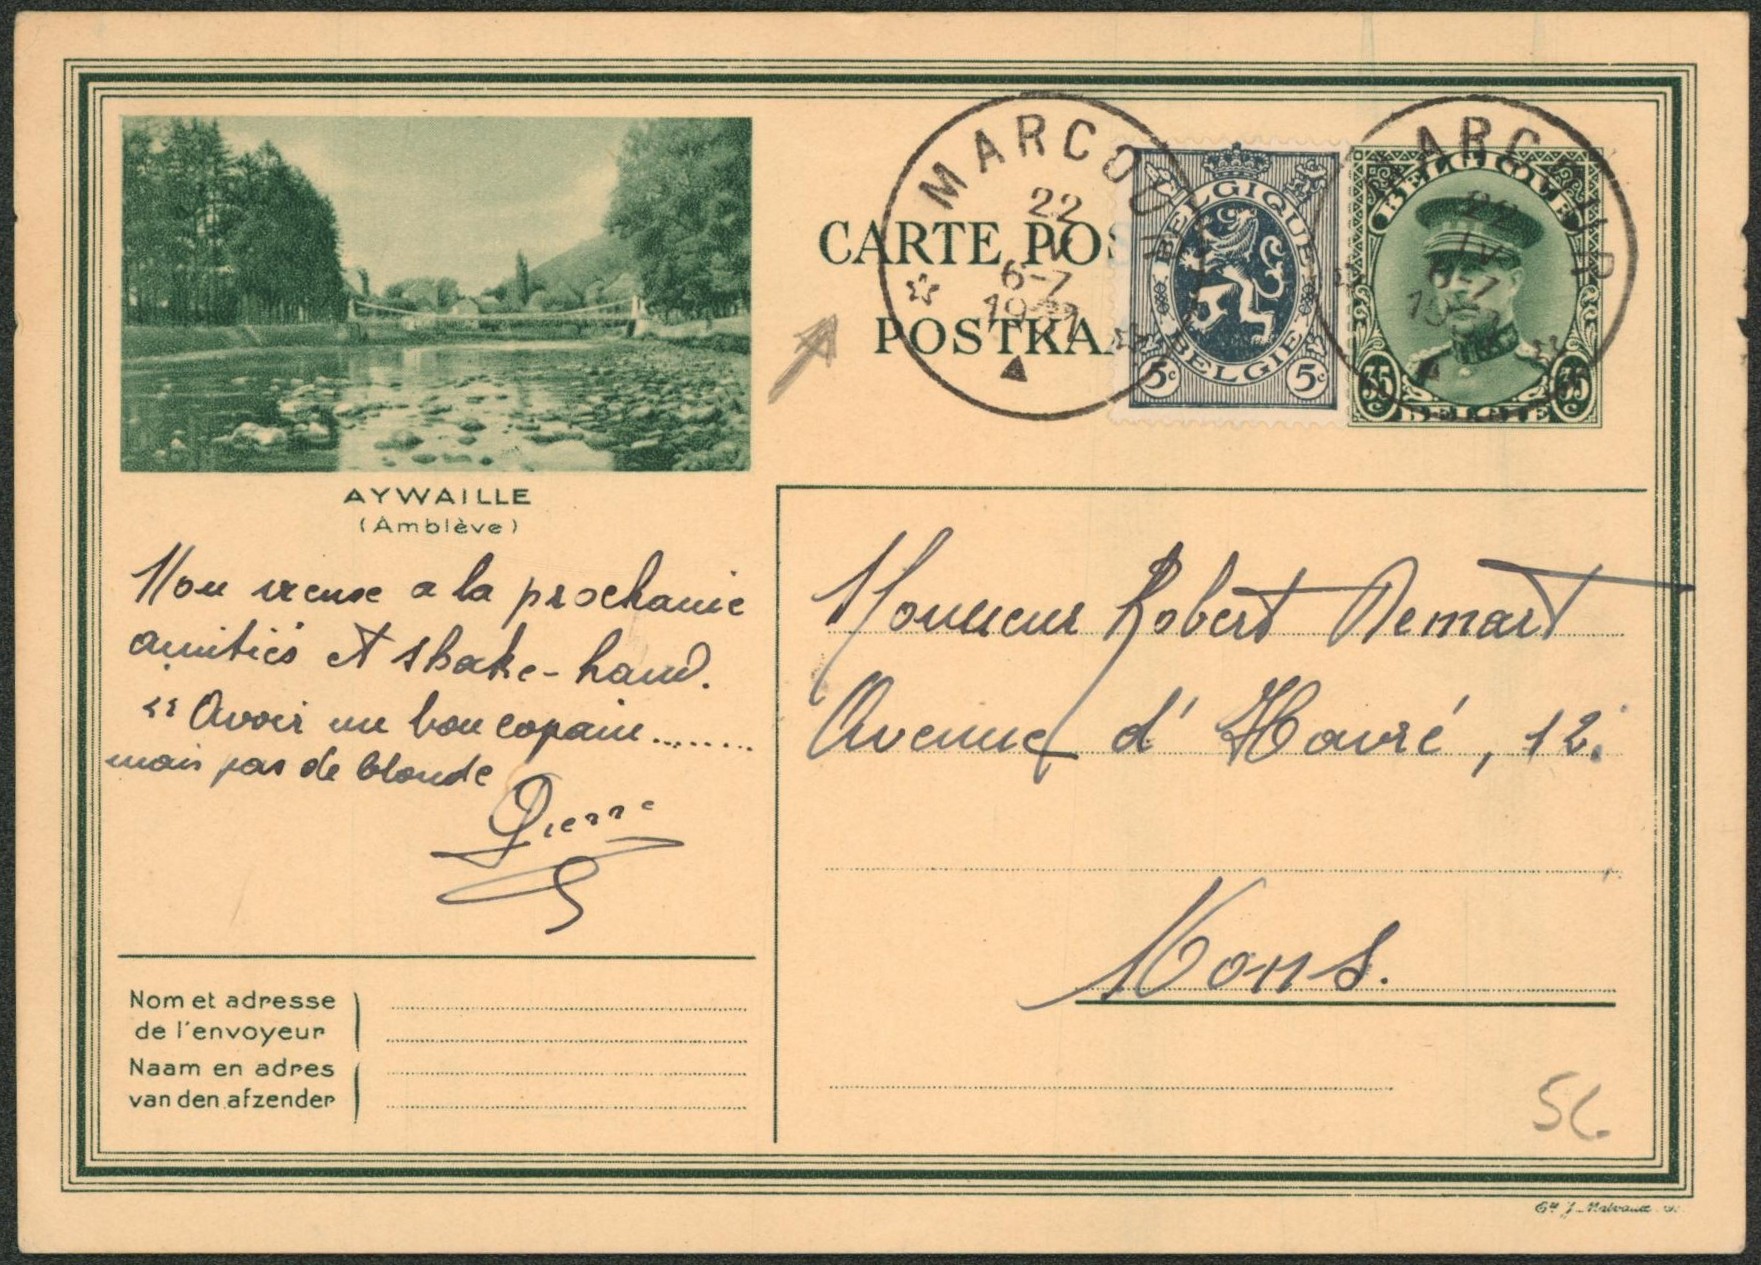 MARCOUR
22
IV
6-7
BELGIQUE
BELGIE
5c 5c
MARCOUR
22
IV
6-7
BELGIQUE
35 35
BELGIE
CARTE POS
POSTKA
AYWAILLE
(Amblève)
Mon vieux a la prochaine
amitiés et shake-hand.
"Avoir un bon copain........
mais pas de blonde
Pierre
Monsieur Robert Demart
Avenue d'Havré, 12.
Mons.
Nom et adresse
de l'envoyeur
Naam en adres
van den afzender
Ets J. Malvaux